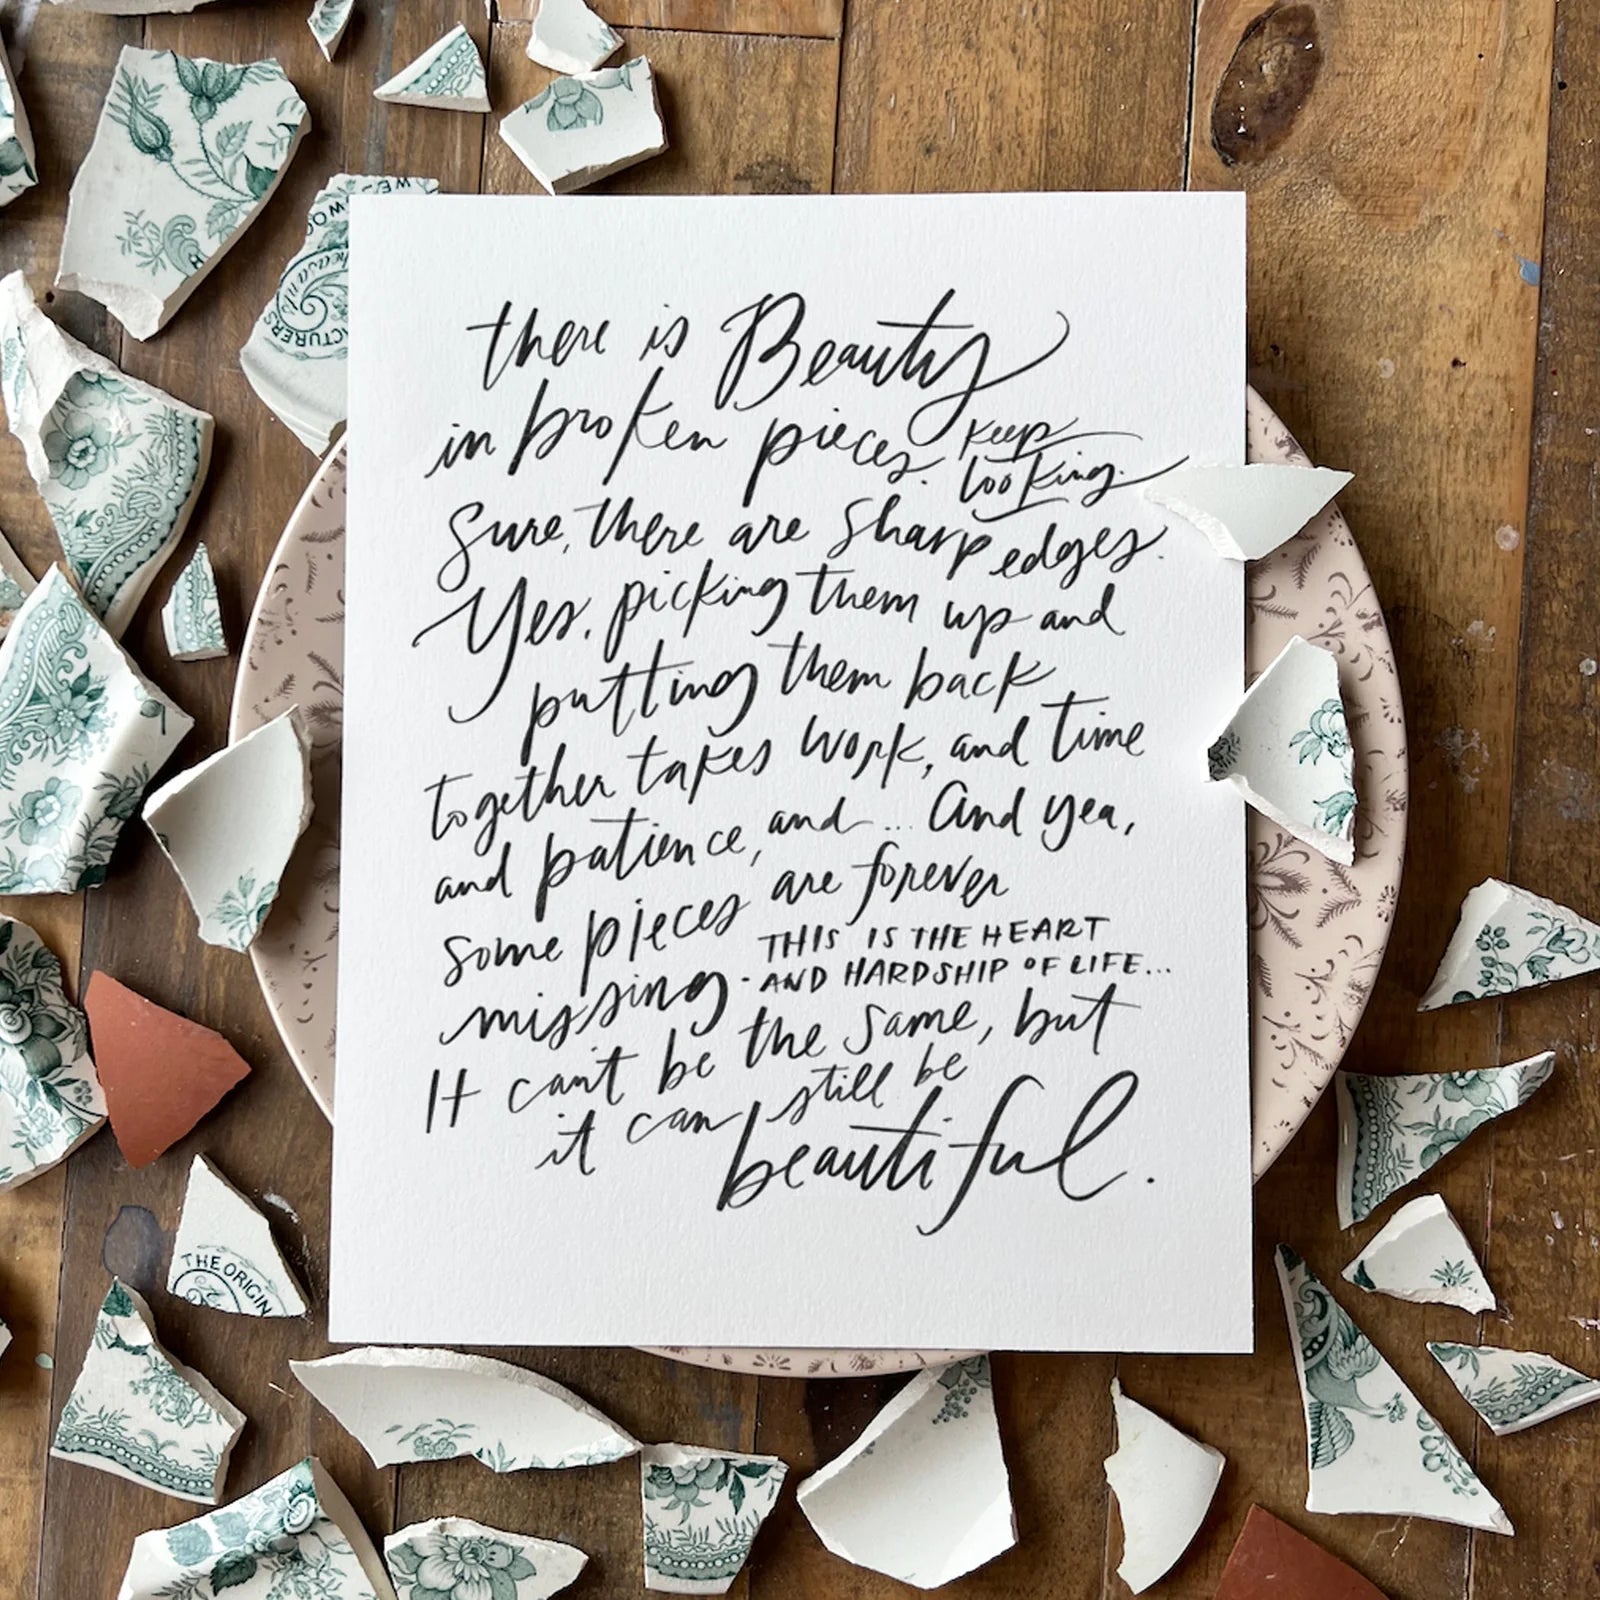 there is Beauty
in broken pieces. keep
looking.
Sure, there are sharp edges.
Yes, picking them up and
putting them back
together takes work, and time
and patience, and... And yea,
some pieces are forever
missing. THIS IS THE HEART
AND HARDSHIP OF LIFE...
It can't be the same, but
it can still be
beautiful.
THE ORIGIN